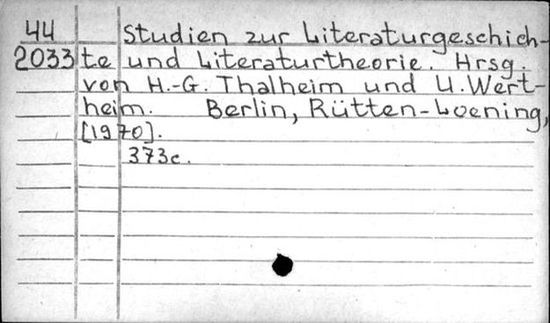 44 Studien zur Literaturgeschich-
2033 te und Literaturtheorie. Hrsg.
von H.-G. Thalheim und U. Wert-
heim. Berlin, Rütten-Loening,
[1970].
373c.